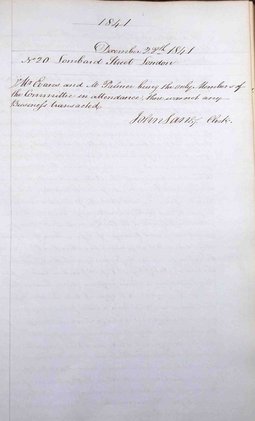 1841
December 22nd 1841
No 20 Lombard Street London
Mr Evans and Mr Palmer being the only Members of
the Committee in attendance, there was not any
Business transacted.
John Clerk.